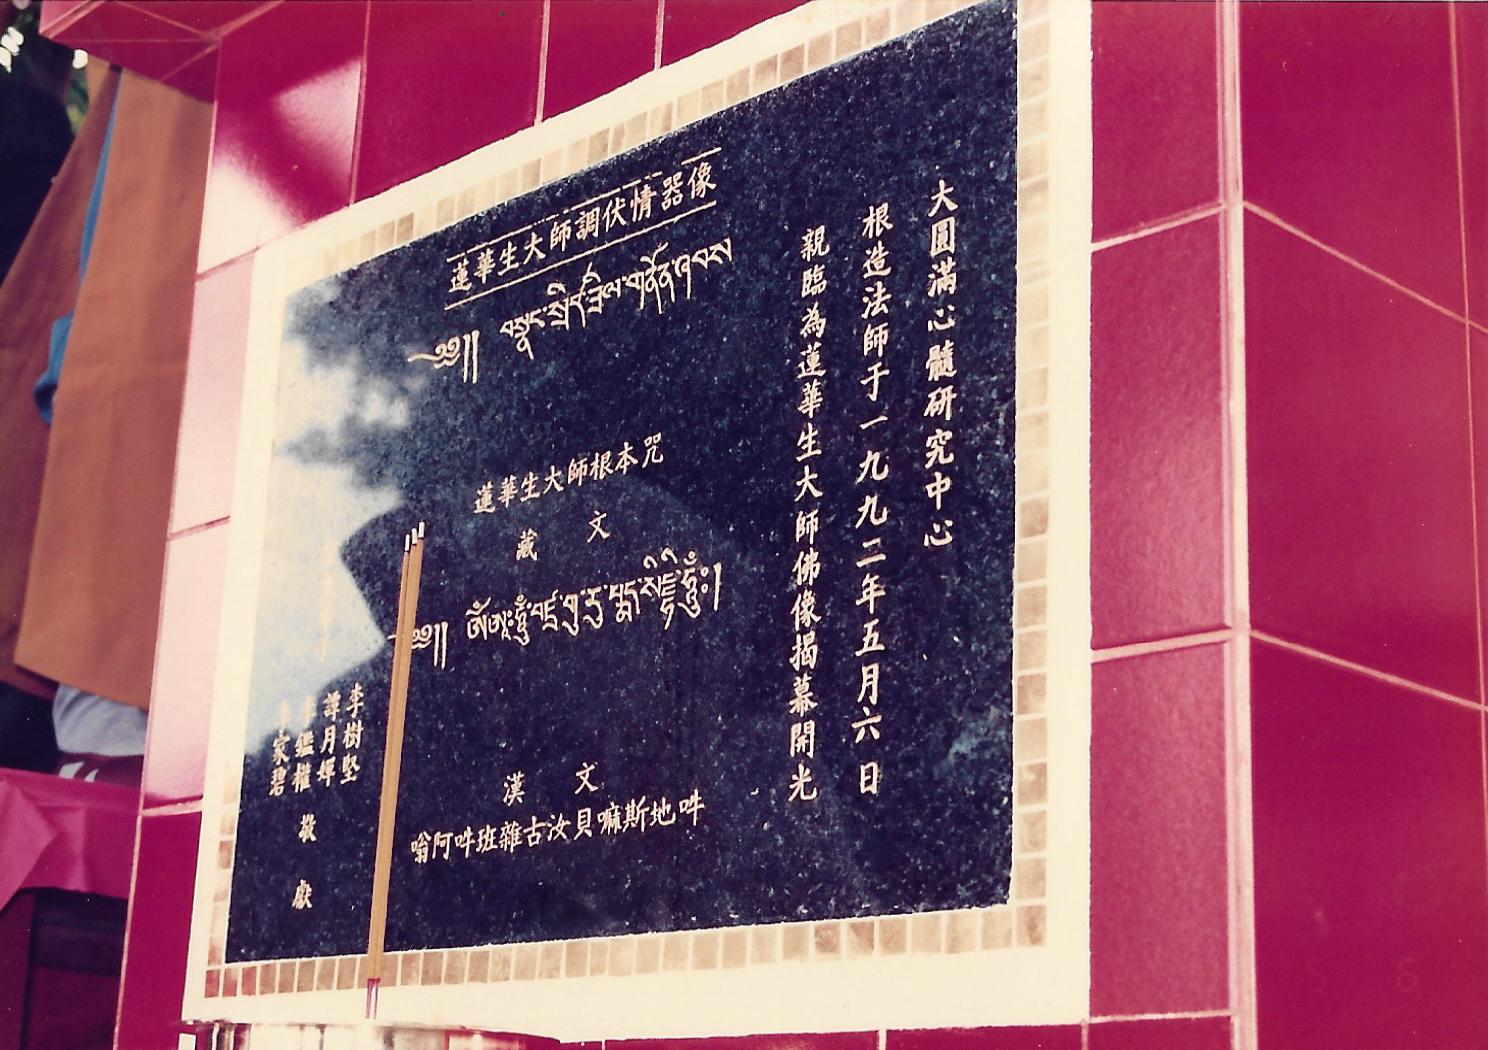 大圓滿心髓硏究中心
根造法師于一九九二年五月六日
親臨為蓮華生大師佛像揭幕開光
蓮華生大師調伏情器像
༄༅།། བསྣང་སྲིད་ཟིལ་གནོན་བཞུགས
蓮華生大師根本咒
藏 文
༄༅།། ༀ་ཨཱཿཧཱུྃ་བཛྲ་གུ་རུ་པདྨ་སིདྡྷི་ཧཱུྃ༔།
漢 文
嗡阿吽班雜古汝貝嘛斯地吽
李樹堅
譚月嬋
鑑權
家碧
敬獻